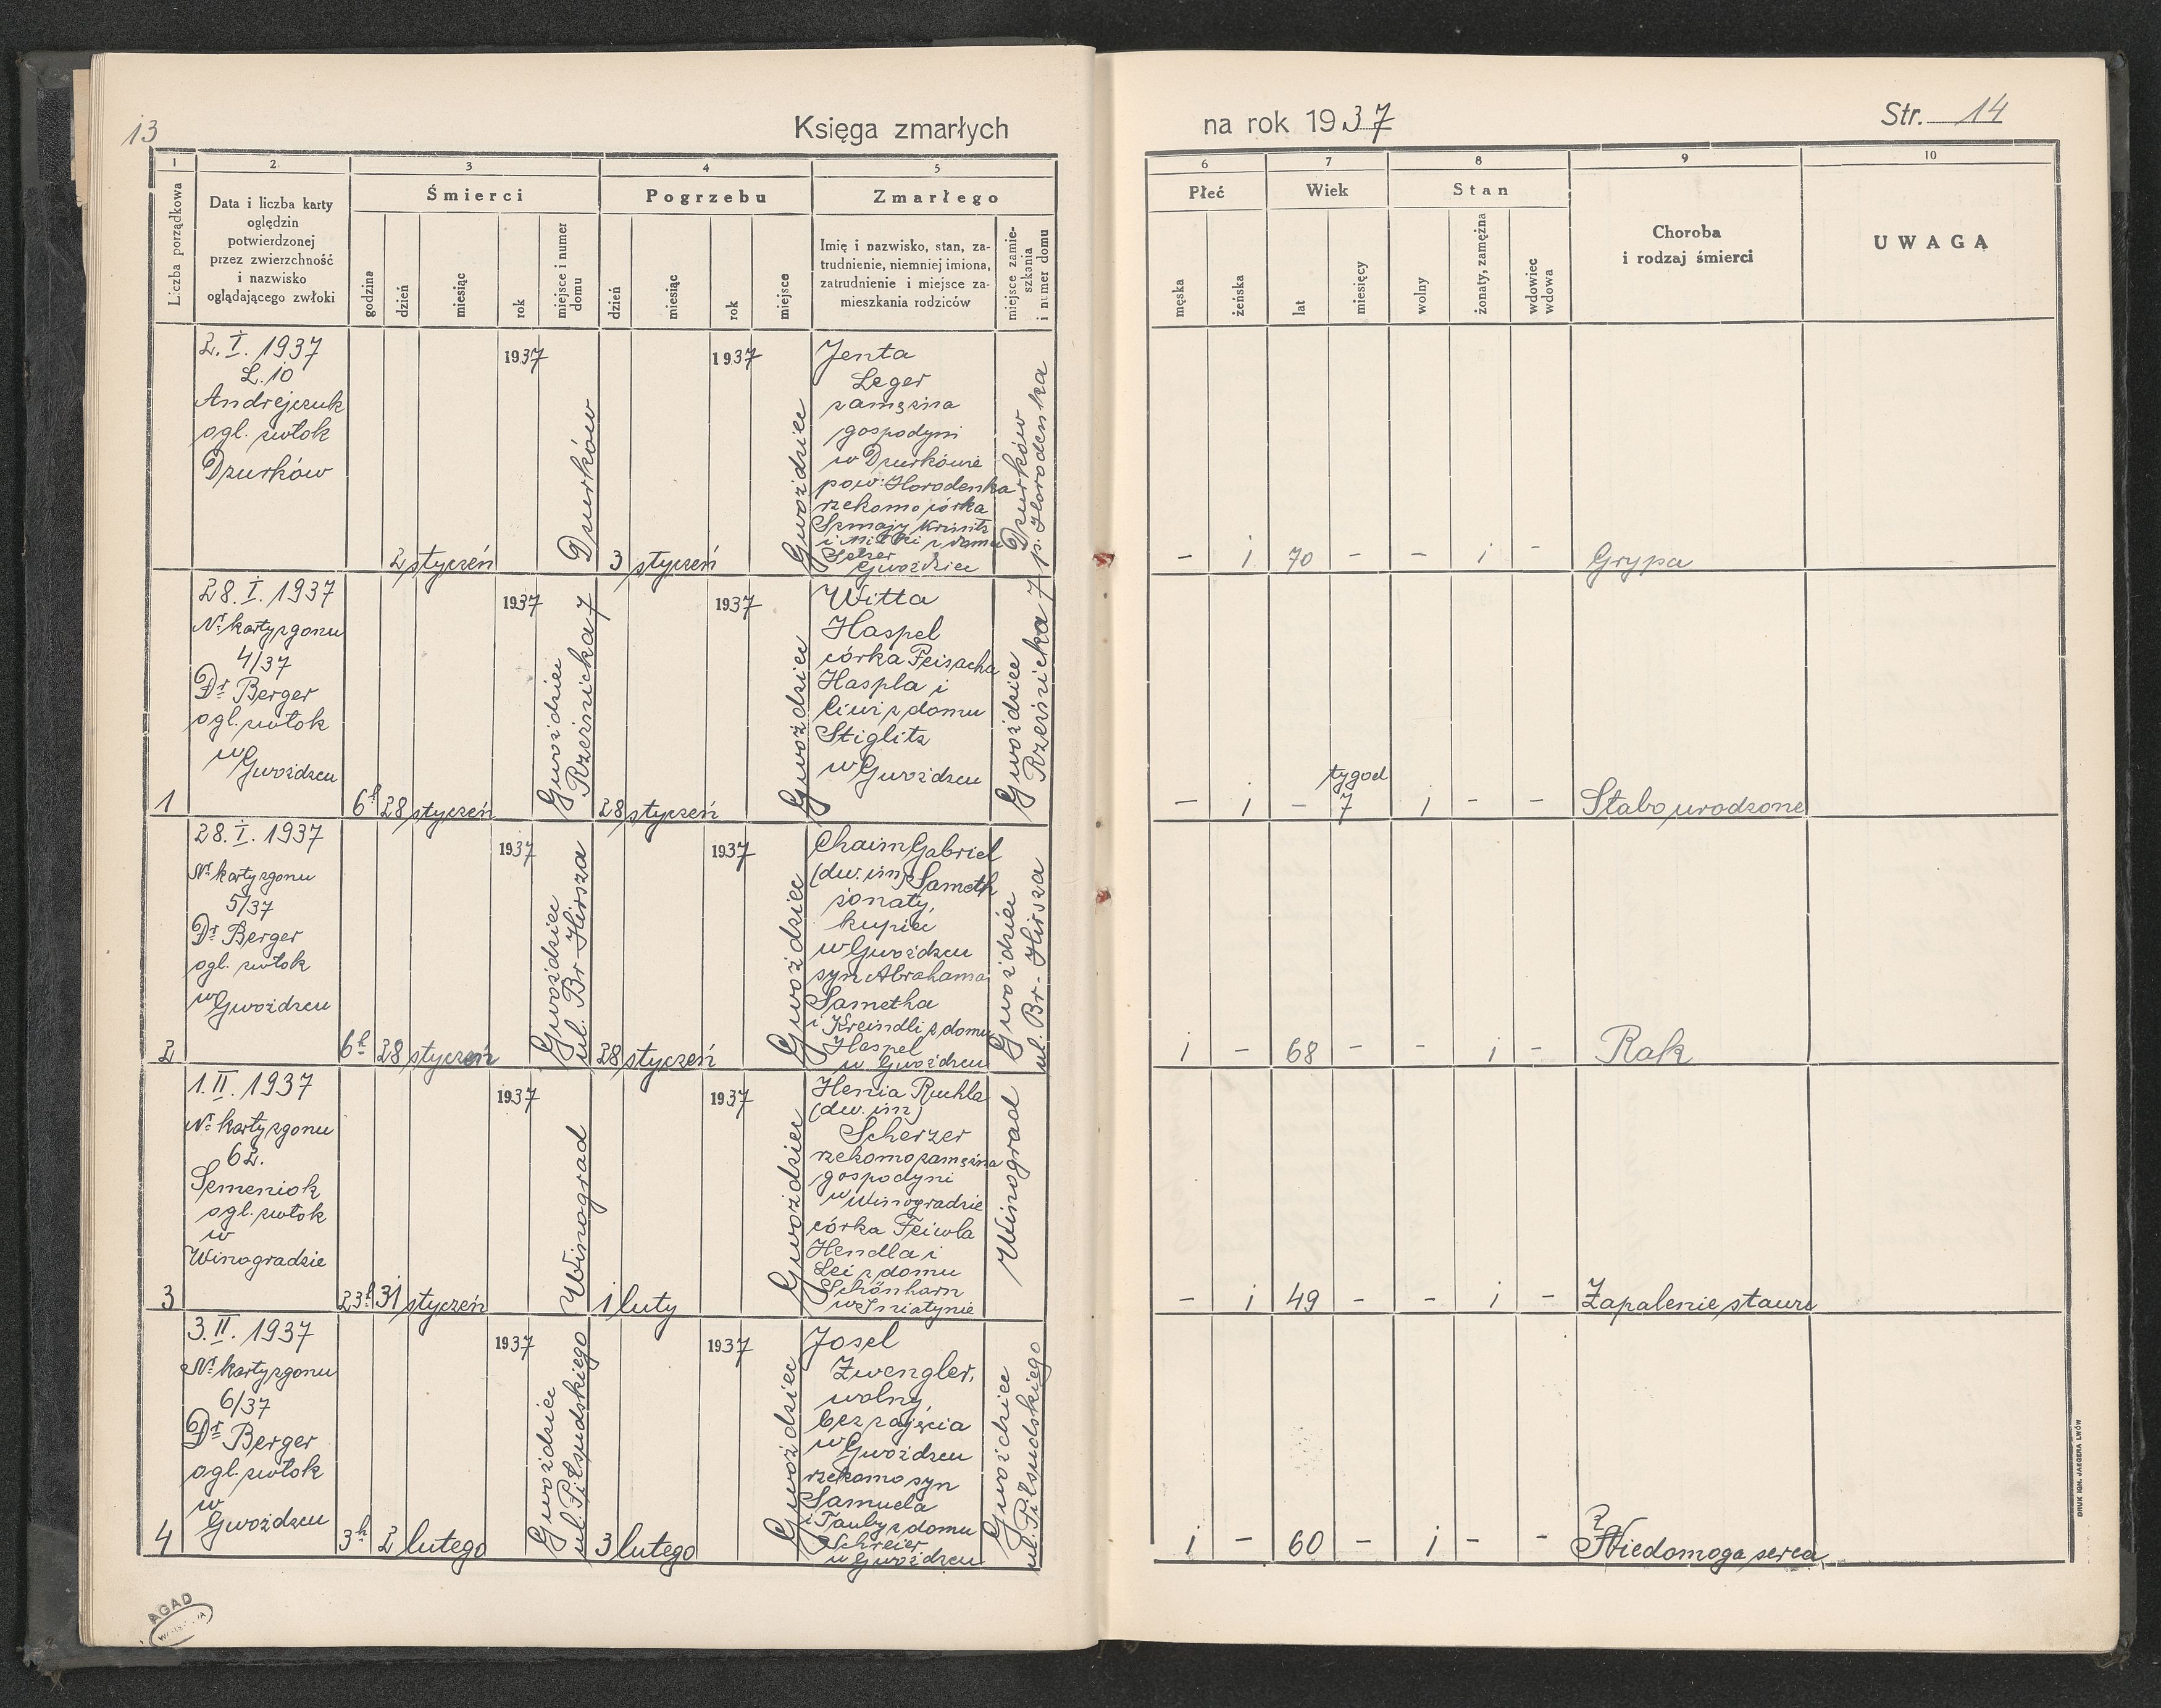 13
Księga zmarłych
1
2
3
4
5
Liczba porządkowa
Data i liczba karty
oględzin
potwierdzonej
przez zwierzchność
i nazwisko
oglądającego zwłoki
Śmierci
godzina
dzień
miesiąc
rok
miejsce i numer
domu
Pogrzebu
dzień
miesiąc
rok
miejsce
Zmarłego
Imię i nazwisko, stan, za-
trudnienie, niemniej imiona,
zatrudnienie i miejsce za-
mieszkania rodziców
miejsce zamie-
szkania
i numer domu
2. I. 1937
L. 10
Andrejczuk
ogl. zwłok
Dzurków
2 styczeń
1937
Dzurków
3 styczeń
1937
Gwoździec
Jenta
Leger
zamężna
gospodyni
w Dzurkowie
pow: Horodenka
rzekomo córka
Szmajy
z domu
Selzer
Gwoździec
Dzurków
p. Horodenka
1
28. I. 1937
Nr karty zgonu
4/37
Dr Berger
ogl. zwłok
w Gwoźdzcu
6h 28 styczeń
1937
Gwoździec
Rzeźnicka 7
28 styczeń
1937
Gwoździec
Witta
Haspel
córka Feisacha
Haspla i
Ciwi z domu
Stiglitz
w Gwoźdzcu
Gwoździec
Rzeźnicka 7
2
28. I. 1937
Nr karty zgonu
5/37
Dr Berger
ogl. zwłok
w Gwoźdzcu
6h 28 styczeń
1937
Gwoździec
ul. Br-Hirsza
28 styczeń
1937
Gwoździec
Chaim Gabriel
(dw. im) Sameth
żonaty,
kupiec
w Gwoźdzcu
syn Abrahama
Sametha
i Kreindli z domu
Haspel
w Gwoźdzcu
Gwoździec
ul. Br-Hirsza
3
1. II. 1937
Nr karty zgonu
62.
Semeniok
ogl. zwłok
w
Winogradzie
23h 31 styczeń
1937
Winograd
1 luty
1937
Gwoździec
Henia Ruchla
(dw. im)
Scherzer
rzekomo zamężna
gospodyni
w Winogradzie
córka Feiwla
Hendla i
Lei z domu
Schönharn
w Śniatynie
Winograd
4
3. II. 1937
Nr karty zgonu
6/37
Dr Berger
ogl. zwłok
w
Gwoźdzcu
3h 2 lutego
1937
Gwoździec
ul. Piłsudskiego
3 lutego
1937
Gwoździec
Josel
Zwengler,
wolny,
bez zajęcia
w Gwoźdzcu
rzekomo syn
Samuela
i Tauby z domu
Schreier
w Gwoźdzcu
Gwoździec
ul. Piłsudskiego
AGAD
na rok 1937
Str. 14
6
7
8
9
10
Płeć
męska
żeńska
Wiek
lat
miesięcy
Stan
wolny
żonaty, zamężna
wdowiec
wdowa
Choroba
i rodzaj śmierci
UWAGA
- 1 70 - - 1 - Grypa
tygod
- 1 - 7 1 - - Słabo urodzone
1 - 68 - - 1 - Rak
- 1 49 - - 1 - Zapalenie stawu
1 - 60 - 1 - - Niedomoga serca
DRUK IGN. JAEGERA LWÓW